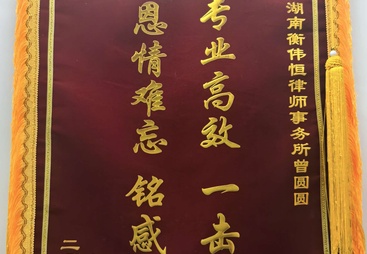 湖南衡伟恒律师事务所曾圆圆
专业高效 一击
恩情难忘 铭感
二